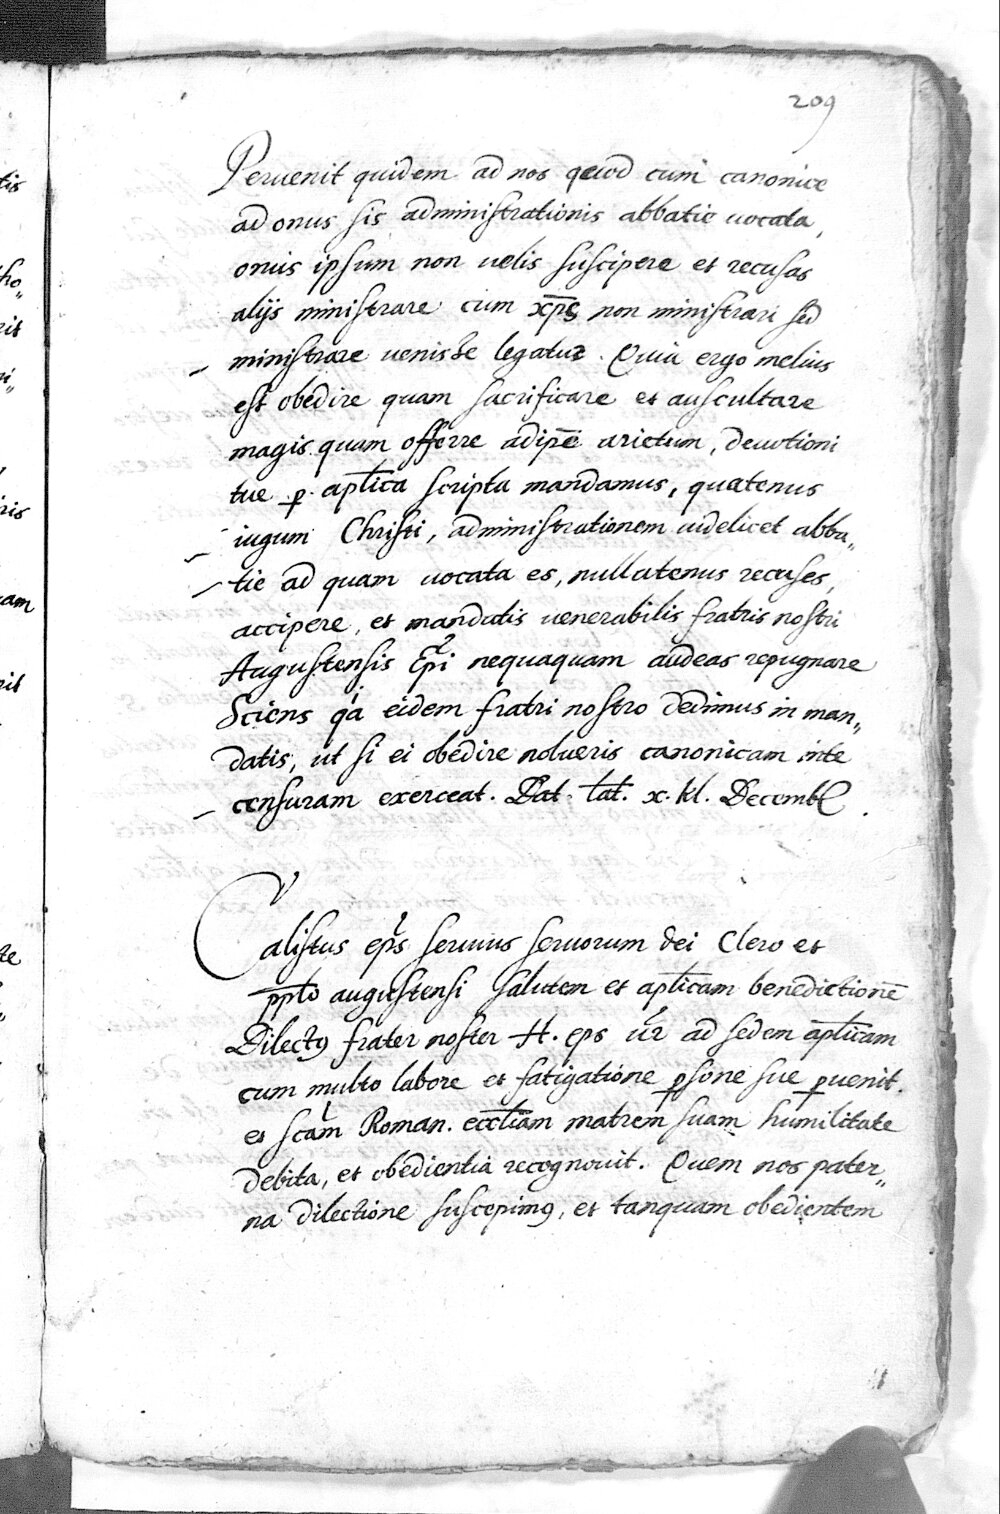 209
Peruenit quidem ad nos quod cum canonice
ad onus sis administrationis abbatie uocata,
onus ipsum non uelis suscipere et recusas
alijs ministrare cum xp̄s non ministrari sed
ministrare uenisse legatur. Quia ergo melius
est obedire quam sacrificare et auscultare
magis quam offerre adipē arietum, deuotioni
tue p. aplica scripta mandamus, quatenus
iugum Christi, administrationem uidelicet abba„
tie ad quam uocata es, nullatenus recuses,
accipere, et mandatis uenerabilis fratris nostri
Augustensis Epi nequaquam audeas repugnare
Sciens qa eidem fratri nostro dedimus in man„
datis, ut si ei obedire nolueris canonicam in te
censuram exerceat. Dat. lat. x. kl. Decemb.
Calistus eps seruus seruorum dei Clero et
pplo augustensi salutem et aplicam benedictionē
Dilectꝯ frater noster H. eps ur ad sedem aplicam
cum multo labore et fatigatione psone sue puenit.
et scam Roman. eccliam matrem suam humilitate
debita, et obedientia recognouit. Quem nos pater„
na dilectione suscepimꝯ, et tanquam obedientem
tis
ho„
rit
ris
am
rit
te